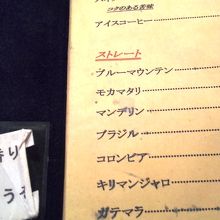 コクのある苦味
アイスコーヒー
ストレート
ブルーマウンテン
モカマタリ
マンデリン
ブラジル
コロンビア
キリマンジャロ
ガテマラ
香り